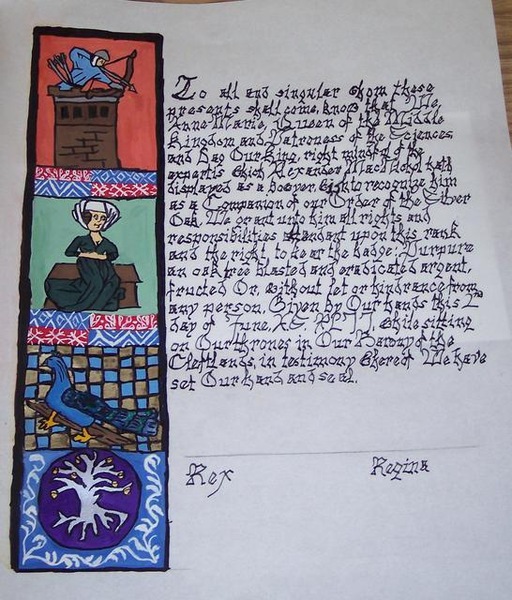 To all and singular whom these
presents shall come, know that We,
Anne Marie, Queen of the Middle
Kingdom and Patroness of the Sciences
and Dag Our King, right mindful of the
expertis which Alexander MacLlolol hath
displayed as a bowyer wish to recognize him
as a Companion of our Order of the Silver
Oak. We grant unto him all rights and
responsibilities attendant upon this rank
and the right to bear the badge; Purpure
an oak tree blasted and eradicated argent,
fructed Or, without let or hindrance from
any person. Given by Our hands this 2nd
day of June, while sitting
on Our thrones in Our Barony of the
Cleftlands, in testimony whereof We have
set Our hand and seal.
Rex Regina